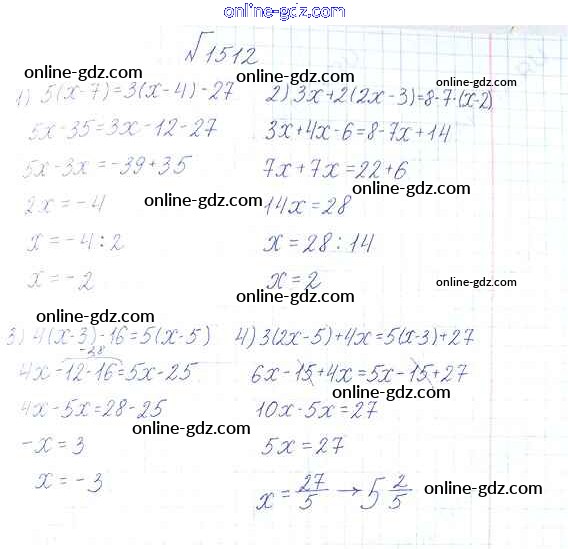 online-gdz.com
√1512
online-gdz.com
online-gdz.com
1) 5(x-7)=3(x-4)-27
5x-35=3x-12-27
5x-3x=-39+35
2x=-4
x=-4:2
x=-2
2) 3x+2(2x-3)=8-7·(x-2)
3x+4x-6=8-7x+14
7x+7x=22+6
14x=28
x=28:14
x=2
online-gdz.com
online-gdz.com
online-gdz.com
online-gdz.com
online-gdz.com
online-gdz.com
3) 4(x-3)-16=5(x-5)
-28
4x-12-16=5x-25
4x-5x=28-25
-x=3
x=-3
4) 3(2x-5)+4x=5(x-3)+27
6x-15+4x=5x-15+27
10x-5x=27
5x=27
x=27/5→5 2/5
online-gdz.com
online-gdz.com
online-gdz.com
online-gdz.com
online-gdz.com